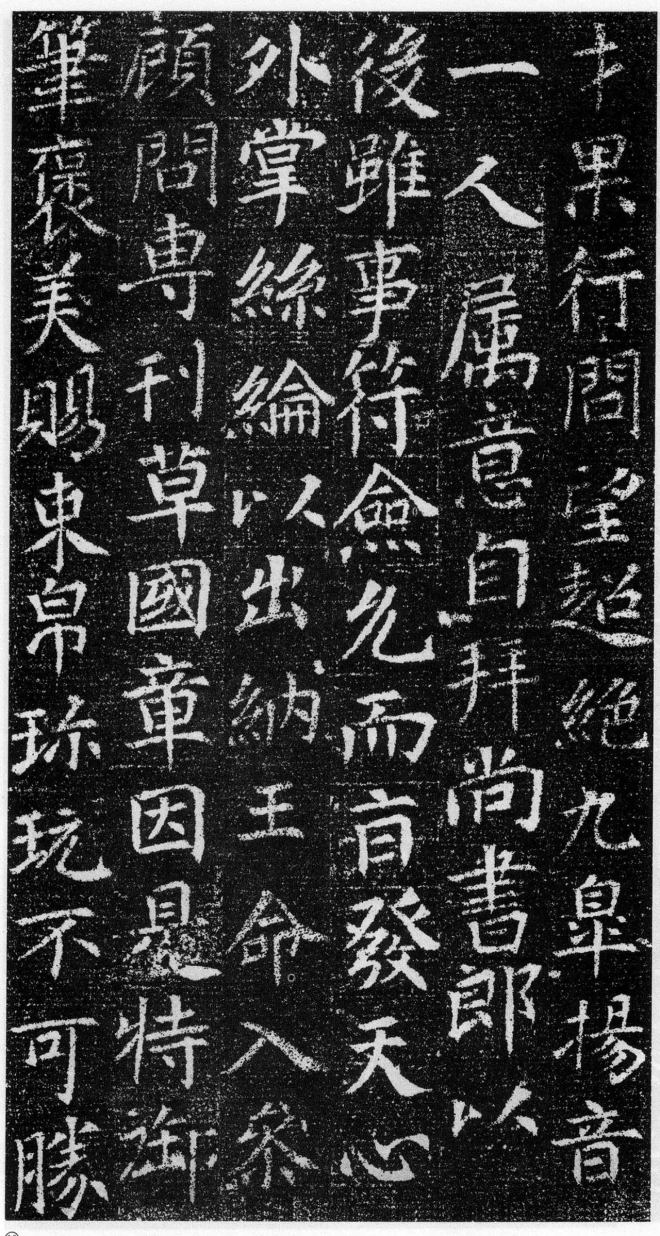 才果行問望超絶九皋揚音
一人属意自拜尚書郎以
後雖事符僉允而旨發天心
外掌絲綸以出納王命入叅
顧問専刊草國章因是特御
筆褒美賜束帛珎玩不可勝